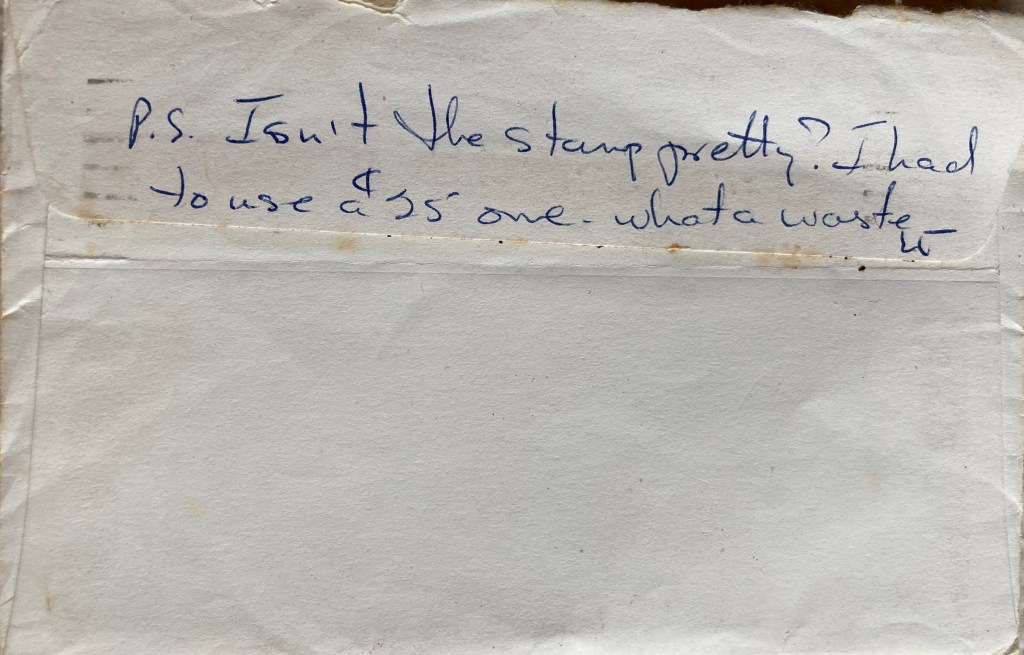 P.S. Isn't the stamp pretty? I had
to use a one. what a waste